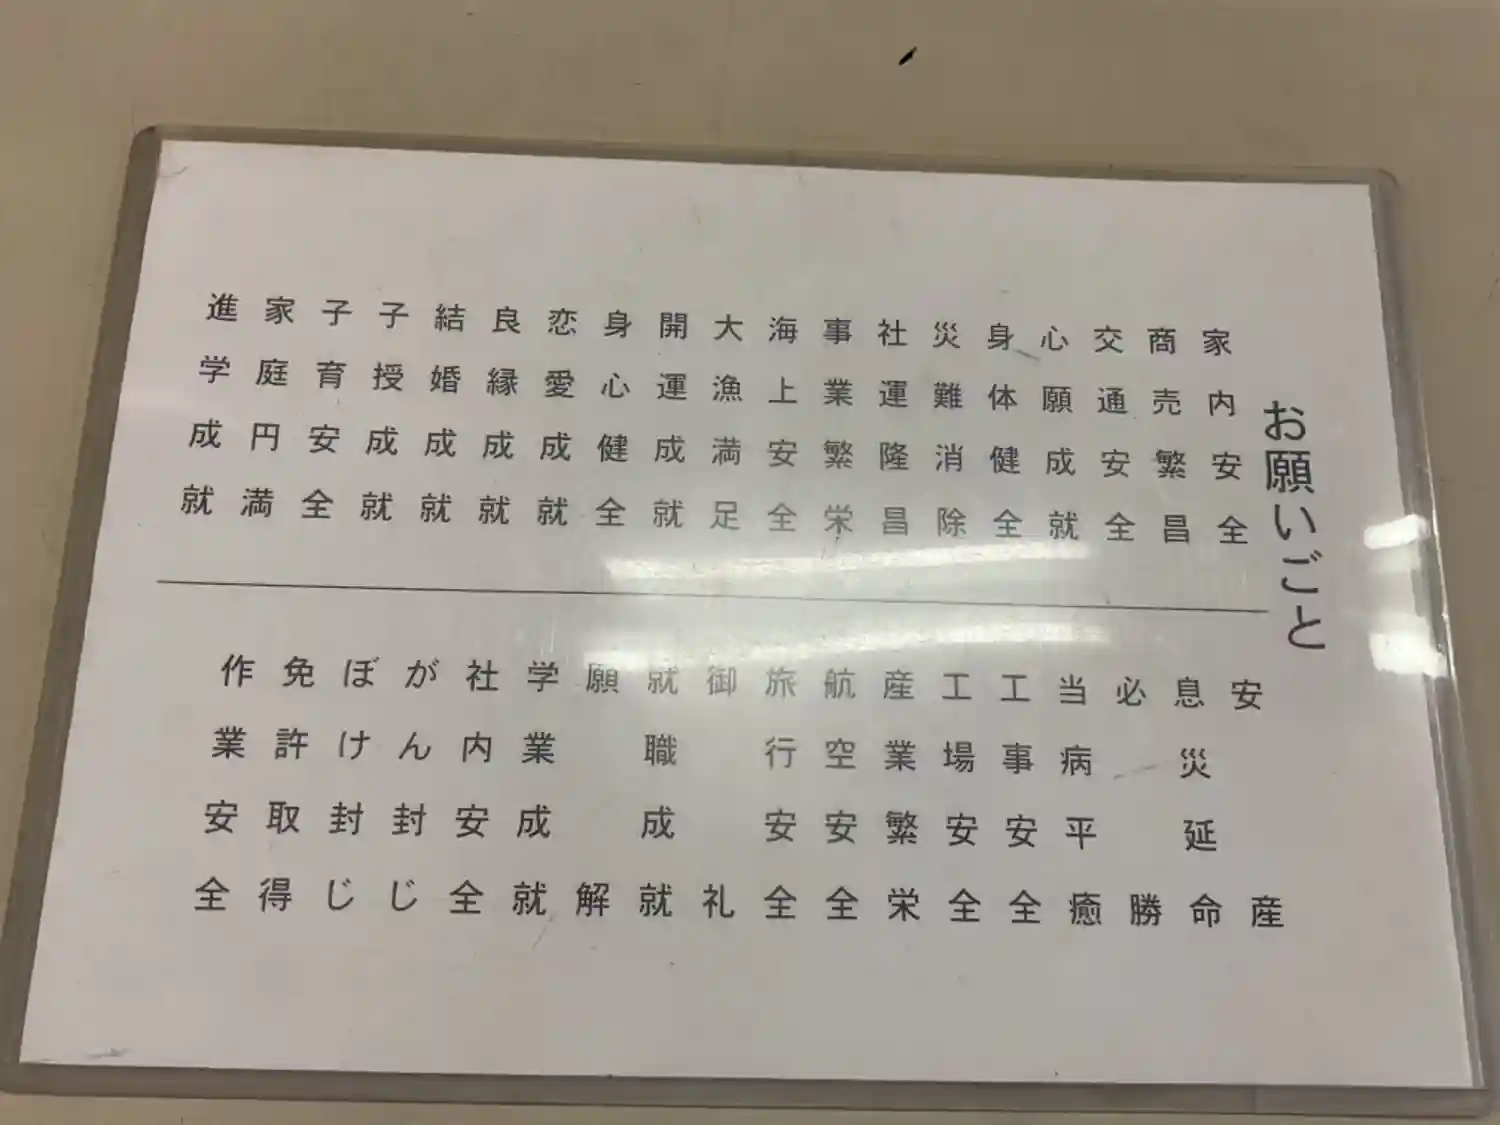 お願いごと
家内安全
商売繁昌
交通安全
心願成就
身体健全
災難消除
社運隆昌
事業繁栄
海上安全
大漁満足
開運成就
身心健全
恋愛成就
良縁成就
結婚成就
子授成就
子育安全
家庭円満
進学成就
安産
息災延命
必勝
当病平癒
工事安全
工場安全
産業繁栄
航空安全
旅行安全
御礼
就職成就
願解
学業成就
社内安全
がん封じ
ぼけ封じ
免許取得
作業安全